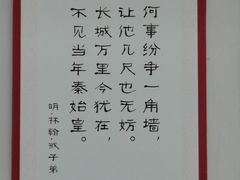 何事纷争一角墙，
让他几尺也无妨。
长城万里今犹在，
不见当年秦始皇。
明·林翰·戒子弟